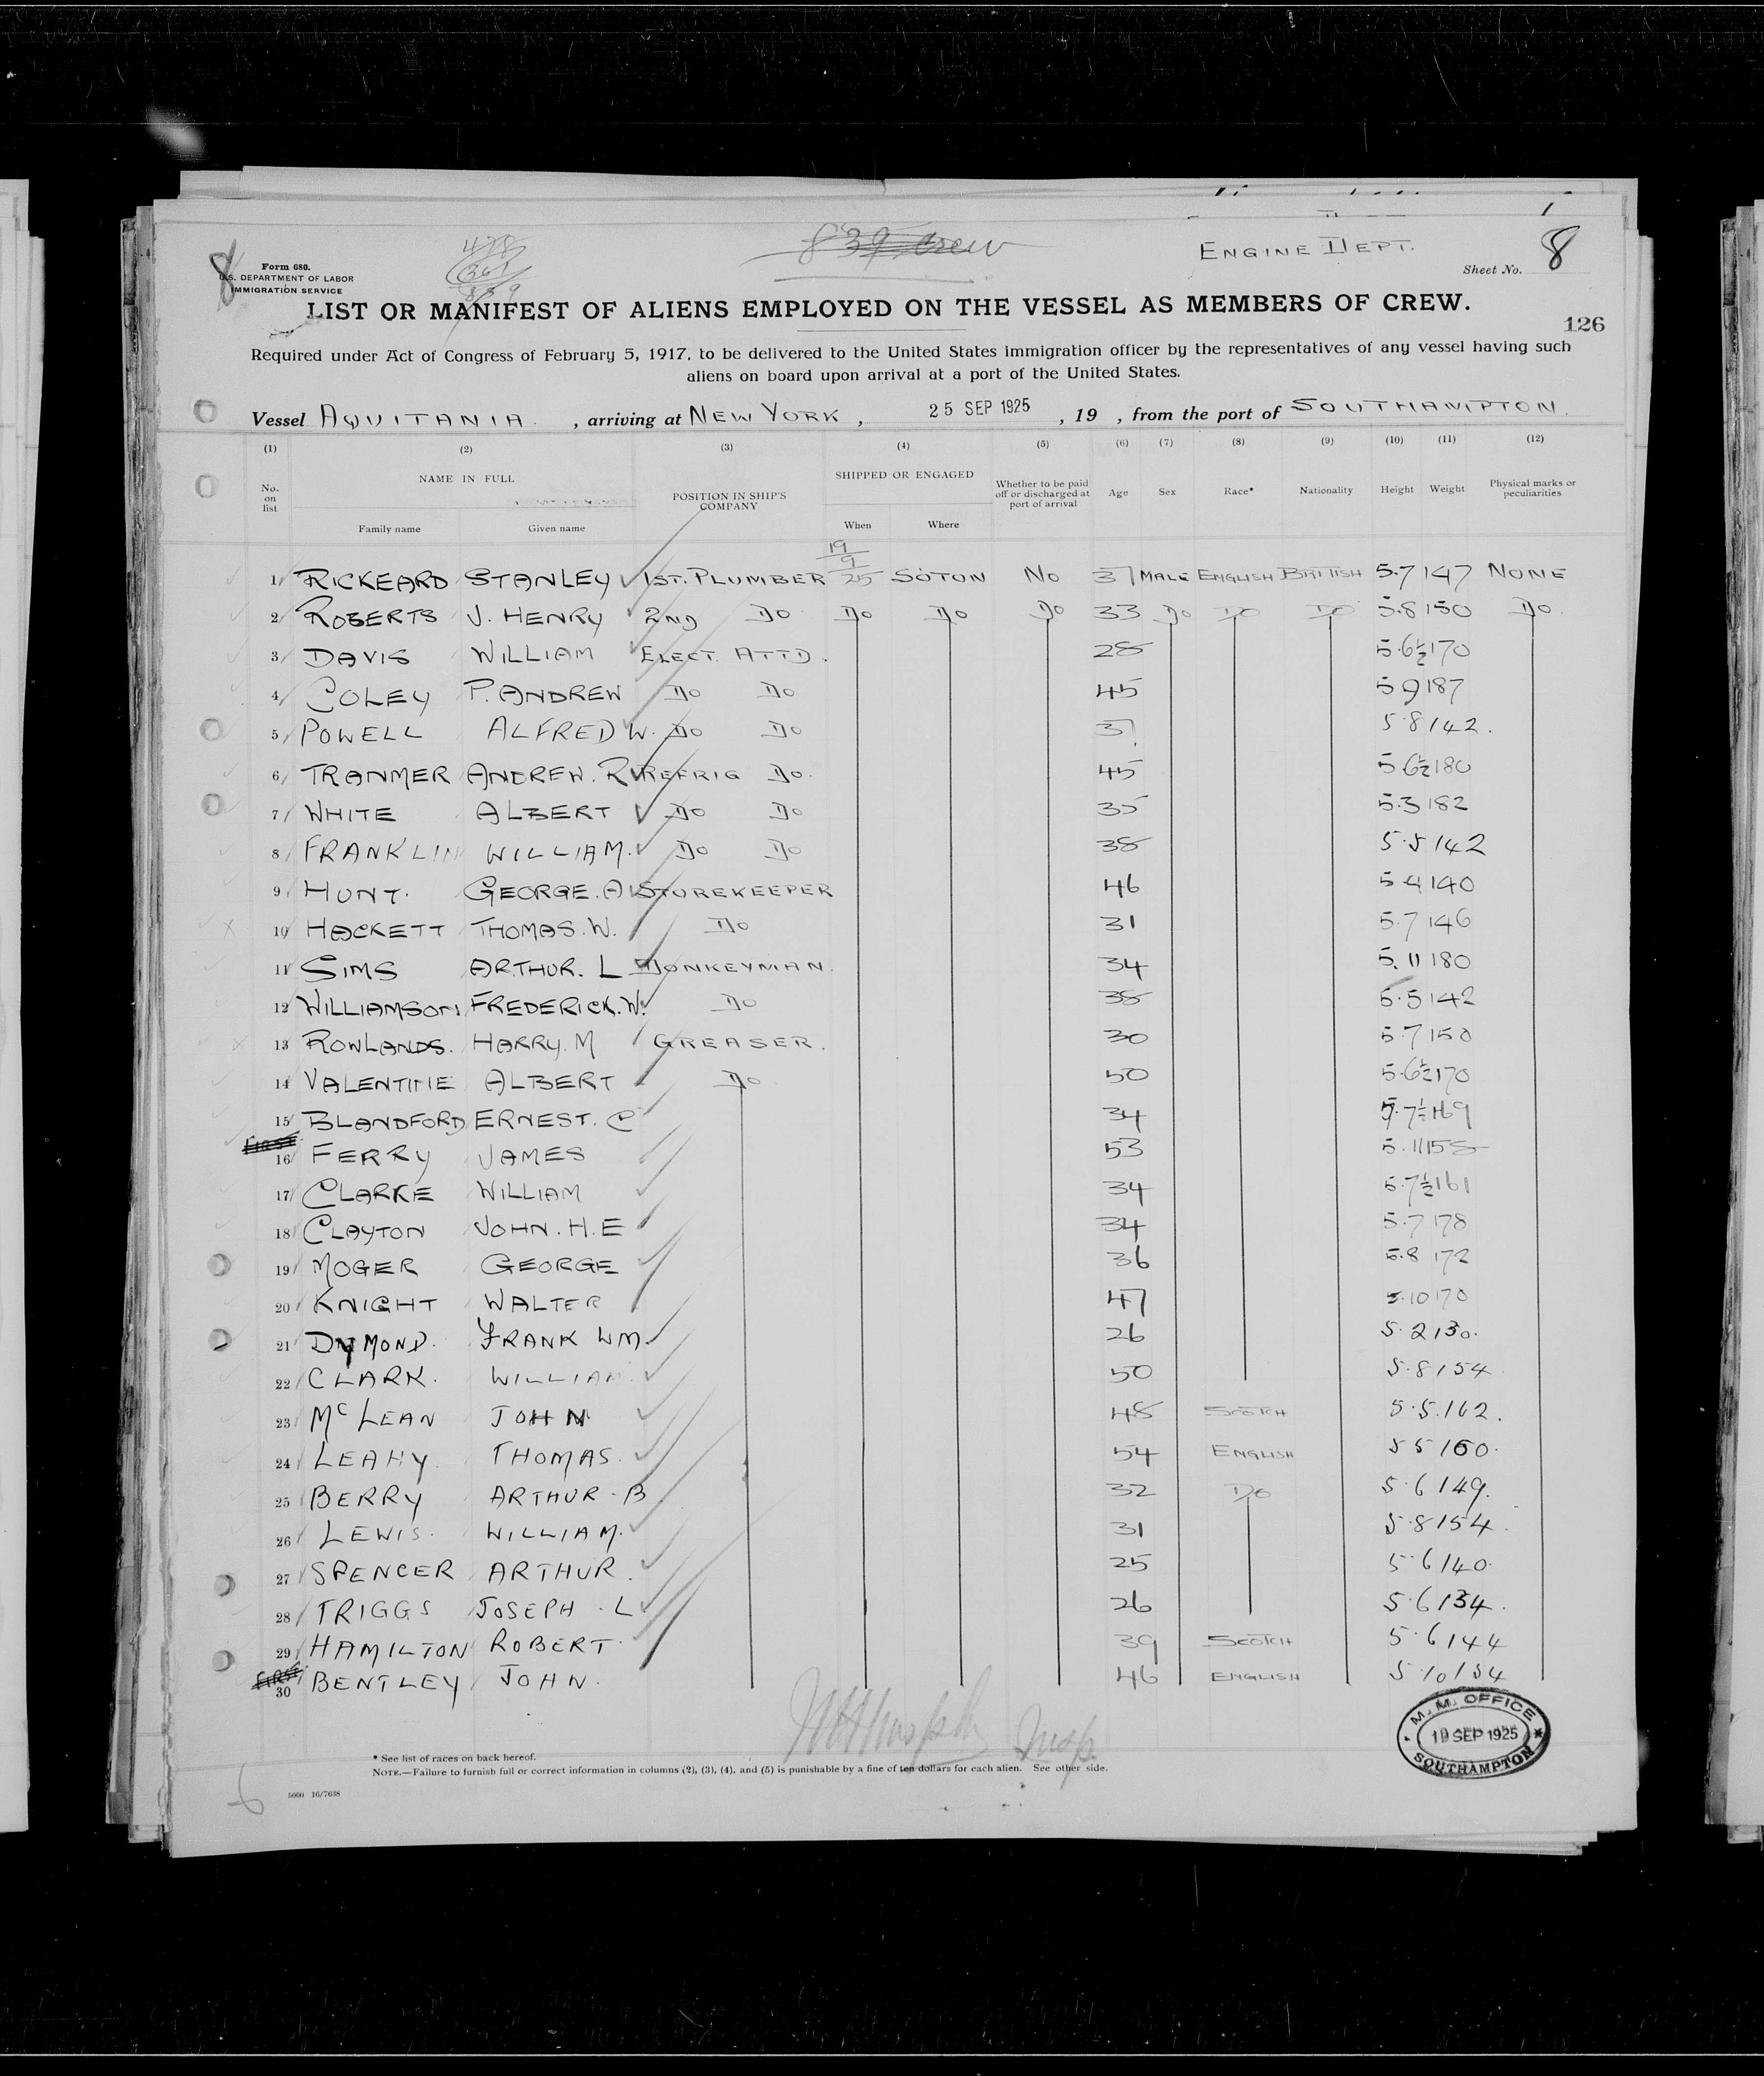 8
Form 680.
U.S. DEPARTMENT OF LABOR
IMMIGRATION SERVICE
478
361
839
839 Crew
ENGINE DEPT.
Sheet No. 8
LIST OR MANIFEST OF ALIENS EMPLOYED ON THE VESSEL AS MEMBERS OF CREW.
126
Required under Act of Congress of February 5, 1917, to be delivered to the United States immigration officer by the representatives of any vessel having such
aliens on board upon arrival at a port of the United States.
Vessel AQUITANIA. , arriving at NEW YORK , 25 SEP 1925 , 19 , from the port of SOUTHAMPTON.
(1) (2) (3) (4) (5) (6) (7) (8) (9) (10) (11) (12)
No. on list NAME IN FULL Family name Given name POSITION IN SHIP'S COMPANY SHIPPED OR ENGAGED When Where Whether to be paid off or discharged at port of arrival Age Sex Race* Nationality Height Weight Physical marks or peculiarities
1 RICKEARD STANLEY 1ST. PLUMBER 19/9/25 SOTON NO 37 MALE ENGLISH BRITISH 5.7 147 NONE
2 ROBERTS J. HENRY 2ND DO DO DO DO 33 DO DO DO 5.8 150 DO.
3 DAVIS WILLIAM ELECT. ATTD. 28 5.6½ 170
4 COLEY P. ANDREW DO DO 45 5 9 187
5 POWELL ALFRED W. DO DO 37 5.8 142.
6 TRANMER ANDREW. R REFRIG DO. 45 5 6½ 180
7 WHITE ALBERT DO DO 35 5.3 182
8 FRANKLIN WILLIAM. DO DO 38 5.5 142
9 HUNT. GEORGE. A STOREKEEPER 46 5 4 140
10 HACKETT THOMAS. W. DO 31 5.7 146
11 SIMS ARTHUR. L DONKEYMAN. 34 5.11 180
12 WILLIAMSON FREDERICK. W. DO 38 5.5 142
13 ROWLANDS. HARRY. M GREASER. 30 5.7 150
14 VALENTINE ALBERT DO 50 5.6½ 170
15 BLANDFORD ERNEST. C 34 5.7½ 169
FIRST
16 FERRY JAMES 53 5.11 158
17 CLARKE WILLIAM 34 5.7½ 161
18 CLAYTON JOHN. H. E 34 5.7 178
19 MOGER GEORGE 36 5.8 172
20 KNIGHT WALTER 47 5.10 170
21 DYMOND. FRANK WM. 26 5.2 130.
22 CLARK. WILLIAM. 50 5.8 154.
23 MCLEAN JOHN 48 SCOTCH 5.5. 162.
24 LEAHY THOMAS. 54 ENGLISH 5 5 160.
25 BERRY ARTHUR. B 32 DO 5.6 149.
26 LEWIS. WILLIAM. 31 5.8 154.
27 SPENCER ARTHUR. 25 5.6 140.
28 TRIGGS JOSEPH. L 26 5.6 134.
29 HAMILTON ROBERT. 39 SCOTCH 5.6 144
FIRST
30 BENTLEY JOHN. 46 ENGLISH 5.10 154
Insp.
M. M. OFFICE
19 SEP 1925
SOUTHAMPTON
* See list of races on back hereof.
NOTE.—Failure to furnish full or correct information in columns (2), (3), (4), and (5) is punishable by a fine of ten dollars for each alien. See other side.
5000 16/7638